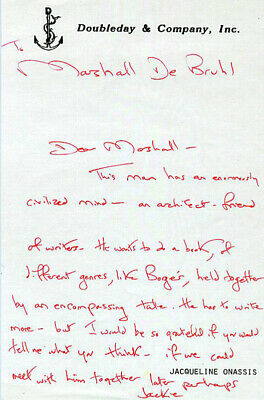 Doubleday & Company, Inc.
To
Marshall De Bruhl
Dear Marshall —
This man has an enormously
civilized mind — an architect - friend
of writers - He wants to do a book, of
different genres, like Borges, held together
by an encompassing tale. He has to write
more - but I would be so grateful if you would
tell me what you think - if we could
meet with him together later perhaps
JACQUELINE ONASSIS
Jackie